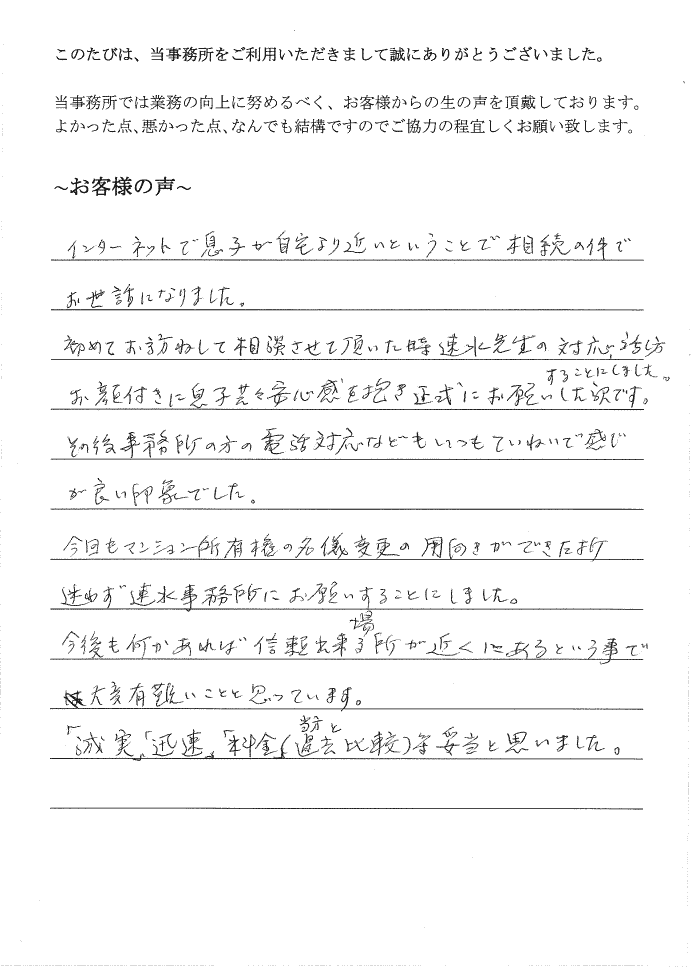 このたびは、当事務所をご利用いただきまして誠にありがとうございました。
当事務所では業務の向上に努めるべく、お客様からの生の声を頂戴しております。
よかった点、悪かった点、なんでも結構ですのでご協力の程宜しくお願い致します。
~お客様の声~
インターネットで息子が自宅より近いということで相続の件で
お世話になりました。
初めてお訪ねして相談させて頂いた時速水先生の対応、話し方
お顔付きに息子共々安心感を抱き正式にお願いした次です。
することにしました。
その後事務所の方の電話対応などもいつもていねいで感じ
が良い印象でした。
今回もマンション所有権の名儀変更の用向きができた折
迷わず速水事務所にお願いすることにしました。
今後も何かあれば信頼出来る場所が近くにあるという事で
大変有難いことと思っています。
「誠実」「迅速」「料金」(当方と過去比較)等妥当と思いました。